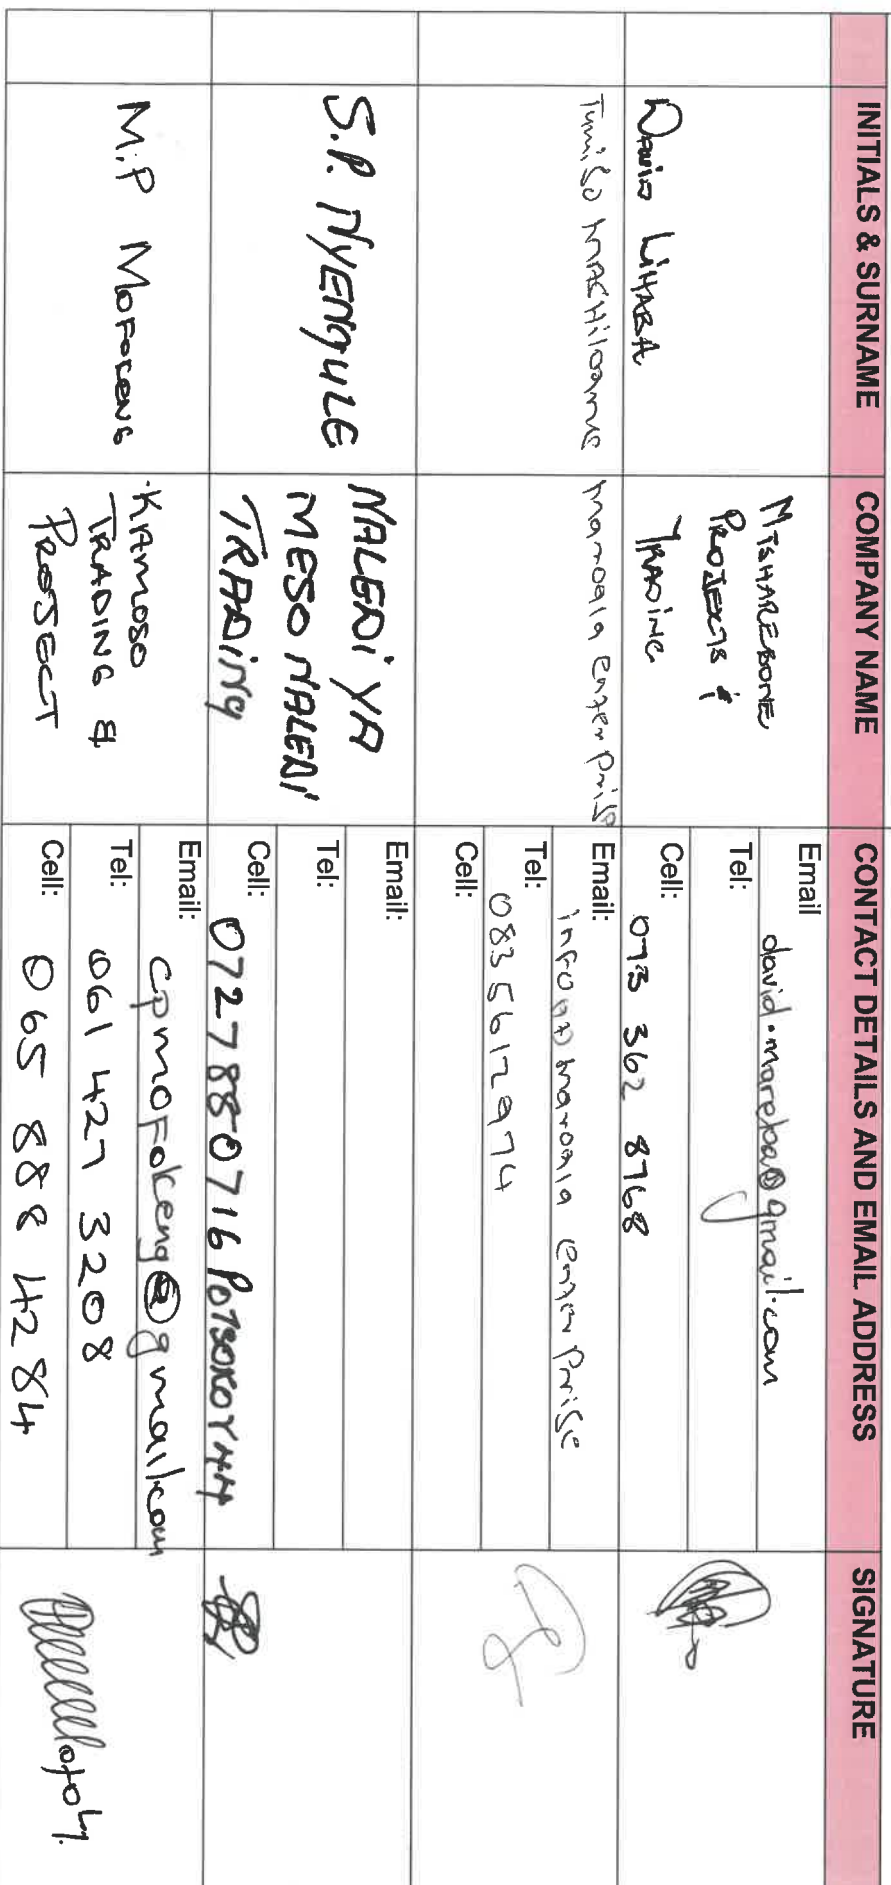 INITIALS & SURNAME COMPANY NAME CONTACT DETAILS AND EMAIL ADDRESS SIGNATURE
David LiHABA
MTSHAREBONE
PROJECTS &
TRADING
Email david.mareba@gmail.com
Tel:
Cell: 073 362 8768
Tumiso
Email: info
Tel: 0835612974
Cell:
S.P. NYENGULE
NALEDI YA
MESO NALEDI
TRADING
Email:
Tel:
Cell: 0727880716
M.P MOFOKENG
KAMOSO
TRADING &
PROJECT
Email: cpmofokeng@gmail.com
Tel: 061 427 3208
Cell: 065 888 4284